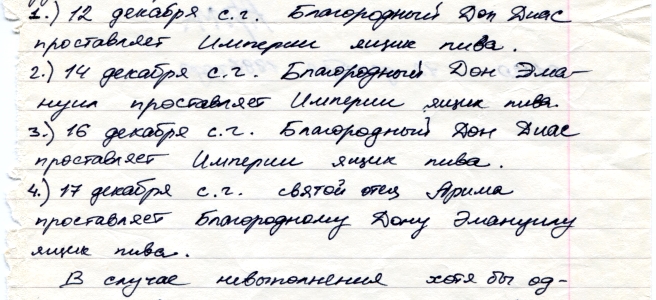 1.) 12 декабря с.г. Благородный Дон Диас
проставляет Империи ящик пива.
2.) 14 декабря с.г. Благородный Дон Эма-
нуил проставляет Империи ящик пива.
3.) 16 декабря с.г. Благородный Дон Диас
проставляет Империи ящик пива.
4.) 17 декабря с.г. святой отец Арима
проставляет Благородному Дону Эмануилу
ящик пива.
В случае невыполнения хотя бы од-